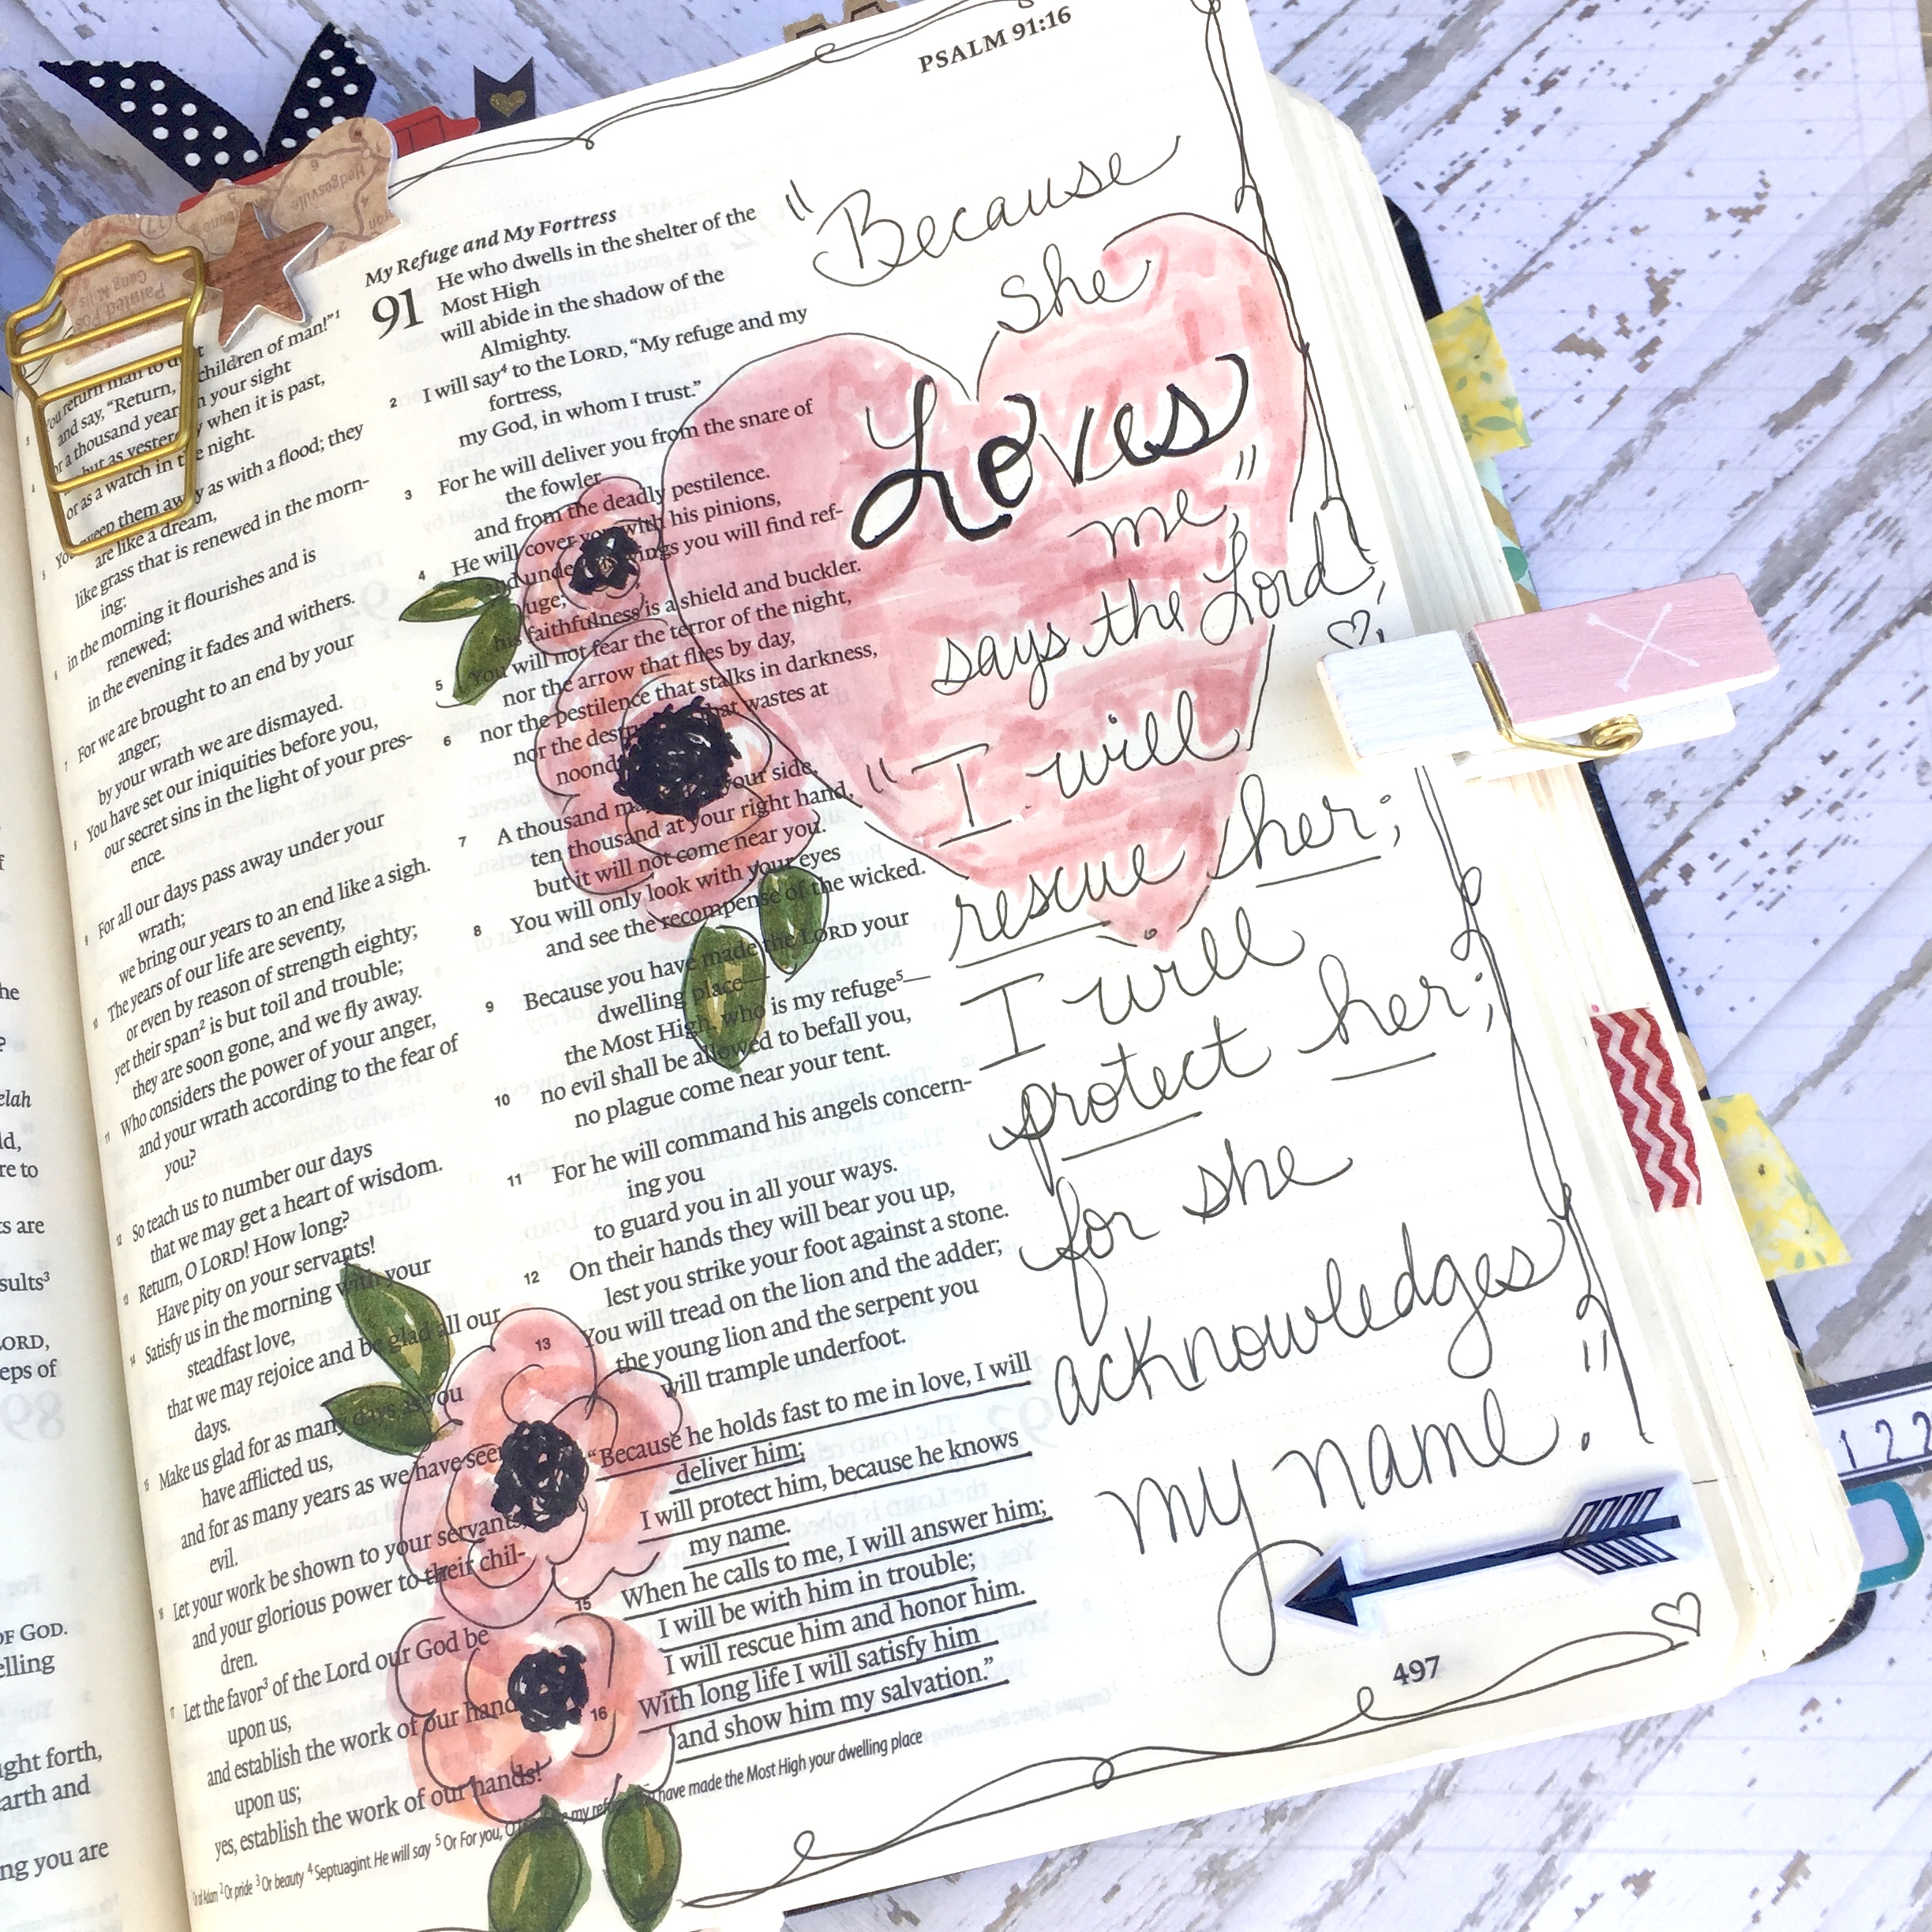 PSALM 91:16
he
?
elah
ld,
re to
s are
sults³
LORD,
eps of
OF GOD.
elling
ght forth,
arth and
ng you are
89
Hedgesville
You return man to
and say, "Return, children of man!"¹
or a thousand years in your sight
but as yesterday when it is past,
or as a watch in the night.
You sweep them away as with a flood; they
are like a dream,
like grass that is renewed in the morn-
ing:
in the morning it flourishes and is
renewed;
in the evening it fades and withers.
For we are brought to an end by your
anger;
by your wrath we are dismayed.
You have set our iniquities before you,
our secret sins in the light of your pres-
ence.
For all our days pass away under your
wrath;
we bring our years to an end like a sigh.
The years of our life are seventy,
or even by reason of strength eighty;
yet their span² is but toil and trouble;
they are soon gone, and we fly away.
Who considers the power of your anger,
and your wrath according to the fear of
you?
So teach us to number our days
that we may get a heart of wisdom.
Return, O LORD! How long?
Have pity on your servants!
Satisfy us in the morning with your
steadfast love,
that we may rejoice and be glad all our
days.
Make us glad for as many days as you
have afflicted us,
and for as many years as we have seen
evil.
Let your work be shown to your servants,
and your glorious power to their chil-
dren.
Let the favor³ of the Lord our God be
upon us,
and establish the work of our hands
upon us;
yes, establish the work of our hands!
My Refuge and My Fortress
91 He who dwells in the shelter of the
Most High
will abide in the shadow of the
Almighty.
2 I will say⁴ to the LORD, "My refuge and my
fortress,
my God, in whom I trust."
3 For he will deliver you from the snare of
the fowler
and from the deadly pestilence.
4 He will cover you with his pinions,
and under wings you will find ref-
uge;
his faithfulness is a shield and buckler.
5 You will not fear the terror of the night,
nor the arrow that flies by day,
6 nor the pestilence that stalks in darkness,
nor the that wastes at
7 A thousand your side,
ten thousand at your right hand,
but it will not come near you.
8 You will only look with your eyes
and see the recompense of the wicked.
9 Because you have made the LORD your
dwelling place—
the Most High, who is my refuge⁵—
10 no evil shall be allowed to befall you,
no plague come near your tent.
11 For he will command his angels concern-
ing you
to guard you in all your ways.
12 On their hands they will bear you up,
lest you strike your foot against a stone.
13 You will tread on the lion and the adder;
the young lion and the serpent you
will trample underfoot.
"Because he holds fast to me in love, I will
deliver him;
I will protect him, because he knows
my name.
15 When he calls to me, I will answer him;
I will be with him in trouble;
I will rescue him and honor him.
16 With long life I will satisfy him
and show him my salvation."
² Or pride ³ Or beauty ⁴ Septuagint He will say ⁵ Or For you, have made the Most High your dwelling place
"Because
she
Loves
me,"
says the Lord;
"I will
rescue her;
I will
protect her;
for she
acknowledges
my name."
497
122